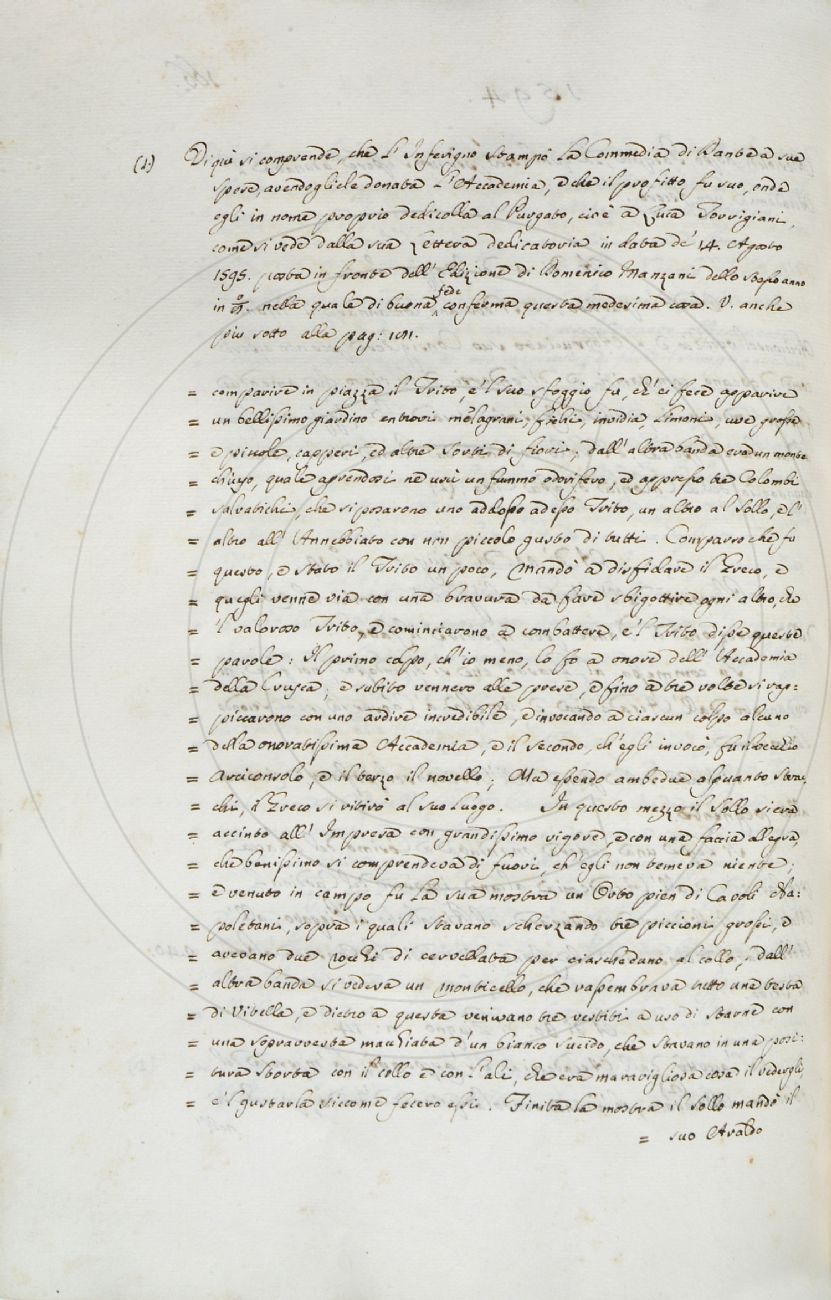 (1) Di quì si comprende, che l'Inferigno stampò la Commedia di Dante a sue
spese, avendogliele donata l'Accademia, e che il profitto fu suo, onde
egli in nome proprio dedicolla al Purgato, cioè a Luca Torrigiani,
come si vede dalla sua Lettera dedicatoria in data de' 14. Agosto
1595. posta in fronte dell'Edizione di Domenico Manzani dello stesso anno
in 8°. nella quale di buona fede conferma questa medesima cosa. V. anche
più sotto alla pag:
= comparire in piazza il Trito, e 'l suo sfoggio fu, ch'ei fece apparire
= un bellissimo giardino entrovi melagrani, fichi, invidia, limoni, uve grosse
= e piccole, capperi, ed altre sorti di fiori; dall'altra banda era un monte
= chiuso, quale aprendosi ne uscì un fummo odorifero, ed appresso tre Colombi
= salvatichi, che si posarono uno addosso ad esso Trito, un altro al Sollo, e l'
= altro all'Annebbiato con non piccolo gusto di tutti. Comparso che fu
= questo, e stato il Trito un poco, mandò a disfidare il Greco, e
= quegli venne via con una bravura da fare sbigottire ogni altro, che
= 'l valoroso Trito, e cominciarono a combattere, e 'l Trito disse queste
= parole: Il primo colpo, ch'io meno, lo fo a onore dell'Accademia
= della Crusca; e subito vennero alle prese, e fino a tre volte si rap=
= piccarono con uno ardire incredibile, e invocando a ciascun colpo alcuno
= della onoratissima Accademia, e il secondo, ch'egli invocò, fu il vecchio
= Arciconsolo, e il terzo il novello; Ma essendo ambedue alquanto strac=
= chi, il Greco si ritirò al suo luogo. In questo mezzo il Sollo si era
= accinto all'Impresa con grandissimo vigore, e con una faccia allegra,
= che benissimo si comprendeva di fuori, ch'egli non temeva niente;
= e venuto in campo fu la sua mostra un Orto pien di Cavoli Na=
= poletani, sopra i quali stavano scherzando tre piccioni grossi, e
= avevano due rocchi di cervellata per ciascheduno al collo; dall'
= altra banda si vedeva un monticello, che rassembrava tutto una testa
= di Vitella, e dietro a questa venivano tre vestiti a uso di starne con
= una sopravvesta macchiata d'un bianco sucido, che stavano in una posi=
= tura storta con il collo e con l'ali, che era maravigliosa cosa il vedergli,
= e 'l gustarla siccome fecero essi. Finita la mostra il Sollo mandò il
= suo Araldo